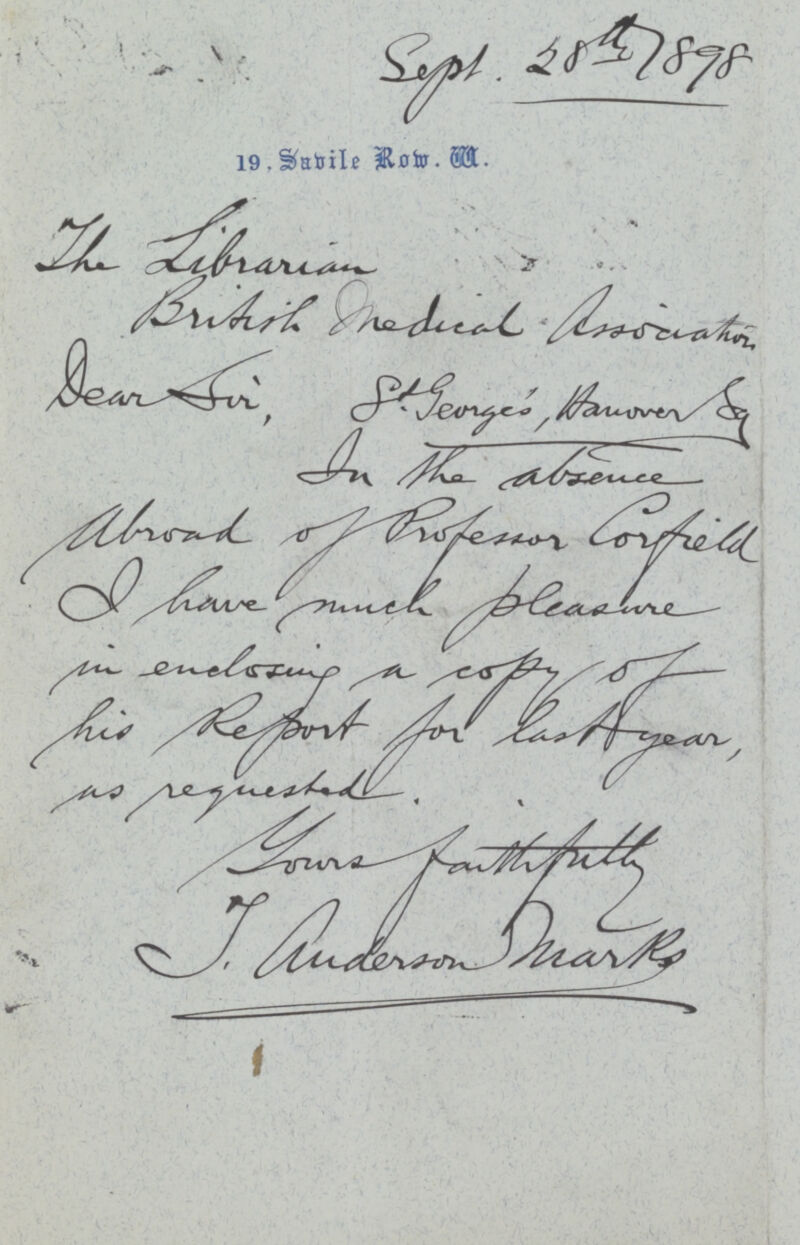 Sept. 28th 1898
19, Savile Row. W.
The Librarian
British Medical Association
Dear Sir, St. George's, Hanover Sq
In the absence
abroad of Professor Corfield
I have much pleasure
in enclosing a copy of
his Report for last year,
as requested.
Yours faithfully
T. Anderson Marks